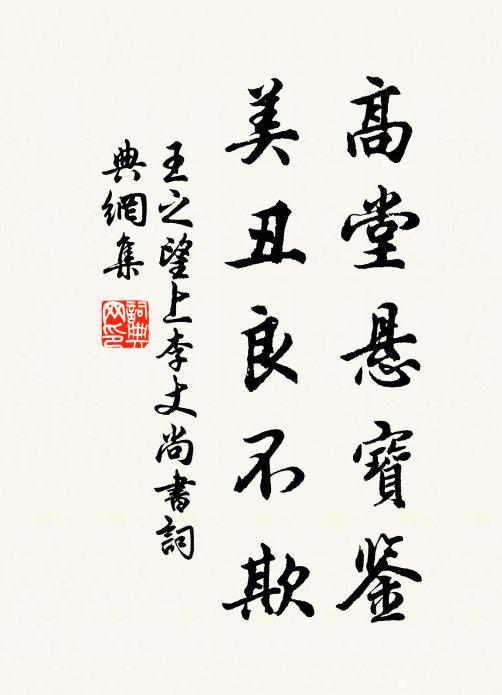 高堂悬寶鉴
美丑良不欺
王之望上李丈尚書詞
典網集
詞典
网印